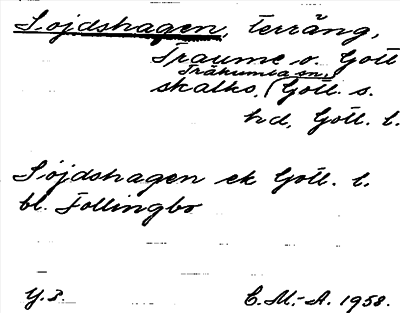 Sojdshagen, terräng,
Traume o. Gotl
Träkumla sn,
skalks, (Gotl. s.
hd, Gotl. l.
Söjdshagen ek Gotl. l.
bl. Follingbo
Y.P.
C.M.-A. 1958.